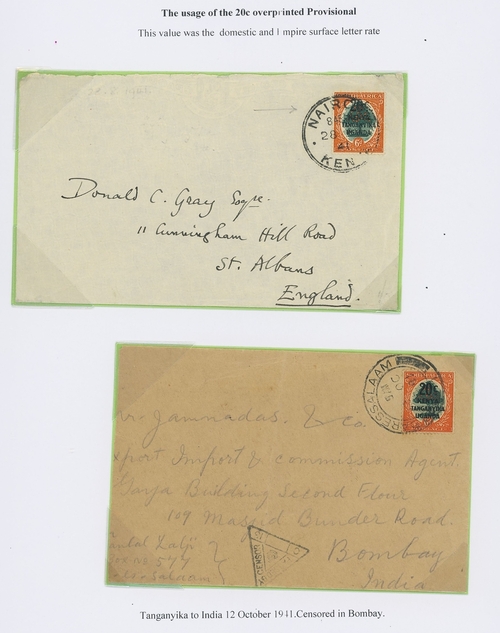 The usage of the 20c overprinted Provisional
This value was the domestic and Empire surface letter rate
NAIROBI
28
KEN
20c
KENYA
TANGANYIKA
UGANDA
Donald C. Gray Esqre.
11 Cunningham Hill Road
St. Albans
England.
DARESSALAAM
20c
KENYA
TANGANYIKA
UGANDA
Jamnadas. & Co.
Export Import & Commission Agent.
Jaya Building Second Flour
109 Masjid Bunder Road.
Bombay
India.
Lalji
Box No. 544
Dar-es-Salaam
Tanganyika to India 12 October 1941.Censored in Bombay.